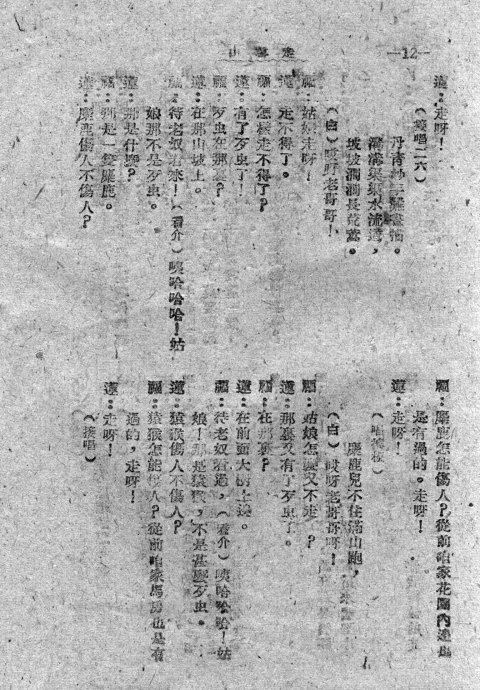 走雪山
—12—
蓮：走呀！
（接唱二六）
丹青妙手難畫描。
溝溝渠渠水流遠，
坡坡澗澗長花蒿。
（白）哎呀老哥哥！
福：姑娘走呀！
蓮：走不得了。
福：怎樣走不得了？
蓮：有了歹虫了！
福：歹虫在那裏？
蓮：在那山坡上。
福：待老奴看來！（看介）咦哈哈哈！姑
娘那不是歹虫。
蓮：那是什麽？
福：那是一隻麋鹿。
蓮：麋鹿傷人不傷人？
福：麋鹿怎能傷人？從前咱家花園內還
是有過的。走呀！
蓮：走呀！
麋鹿兒不住滿山跑，
（白）哎呀老哥哥呀！
福：姑娘怎麽又不走？
蓮：那裏又有了歹虫了。
福：在那裏？
蓮：在前面大樹上邊。
福：待老奴看過，（看介）咦哈哈哈！姑
娘！那是猿猴，不是甚麽歹虫。
蓮：猿猴傷人不傷人？
福：猿猴怎能傷人？從前咱家馬房也是有
過的，走呀！
蓮：走呀！
（接唱）